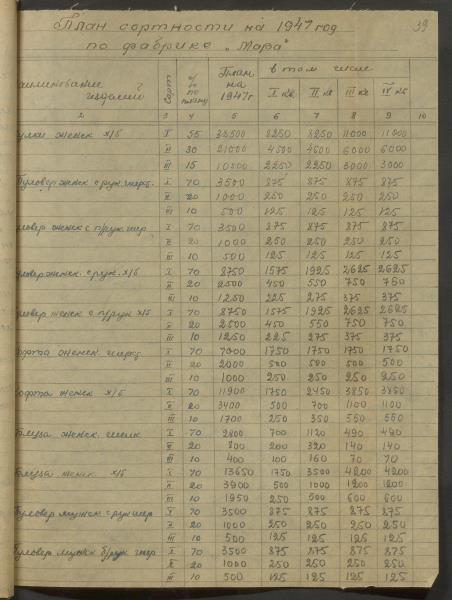 39
План сортности на 1947 год
по фабрике „Мара"
наименование изделий Сорт % по плану План на 1947г в том числе
I кв. II кв III кв IV кв
2 3 4 5 6 7 8 9 10
женск х/б I 55 38500 8250 8250 11000 11000
II 30 21000 4500 4500 6000 6000
III 15 10500 2250 2250 3000 3000
Пуловер женск с рук. шерст. I 70 3500 875 875 875 875
II 20 1000 250 250 250 250
III 10 500 125 125 125 125
Пуловер женск с п/рук шер I 70 3500 875 875 875 875
II 20 1000 250 250 250 250
III 10 500 125 125 125 125
Пуловер женск. с рук. х/б I 70 8750 1575 1925 2625 2625
II 20 2500 450 550 750 750
III 10 1250 225 275 375 375
Пуловер женск с п/рук х/б I 70 8750 1575 1925 2625 2625
II 20 2500 450 550 750 750
III 10 1250 225 275 375 375
Кофта женск. шерст. I 70 7000 1750 1750 1750 1750
II 20 2000 500 500 500 500
III 10 1000 250 250 250 250
Кофта женск х/б I 70 11900 1750 2450 3850 3850
II 20 3400 500 700 1100 1100
III 10 1700 250 350 550 550
Блуза женск. шелк I 70 2800 700 1120 490 490
II 20 800 200 320 140 140
III 10 400 100 160 70 70
Блуза женск. х/б I 70 13650 1750 3500 4200 4200
II 20 3900 500 1000 1200 1200
III 10 1950 250 500 600 600
Пуловер мужск с рук шер I 70 3500 875 875 875 875
II 20 1000 250 250 250 250
III 10 500 125 125 125 125
Пуловер мужск б/рук шер I 70 3500 875 875 875 875
II 20 1000 250 250 250 250
III 10 500 125 125 125 125